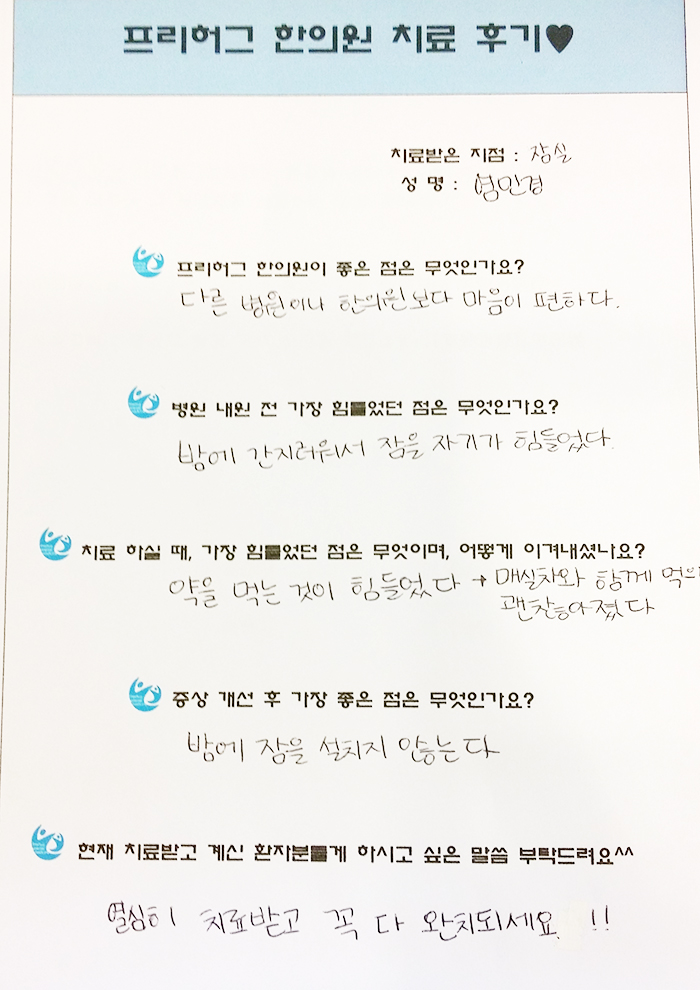 프리허그 한의원 치료 후기♥
치료받은 지점 : 잠실
성 명 : 염민경
프리허그 한의원이 좋은 점은 무엇인가요?
다른 병원이나 한의원보다 마음이 편하다.
병원 내원 전 가장 힘들었던 점은 무엇인가요?
밤에 간지러워서 잠을 자기가 힘들었다.
치료 하실 때, 가장 힘들었던 점은 무엇이며, 어떻게 이겨내셨나요?
약을 먹는 것이 힘들었다 → 매실차와 함께
괜찮아졌다
증상 개선 후 가장 좋은 점은 무엇인가요?
밤에 잠을 설치지 않는다
현재 치료받고 계신 환자분들게 하시고 싶은 말씀 부탁드려요^^
열심히 치료받고 꼭 다 완치되세요 !!